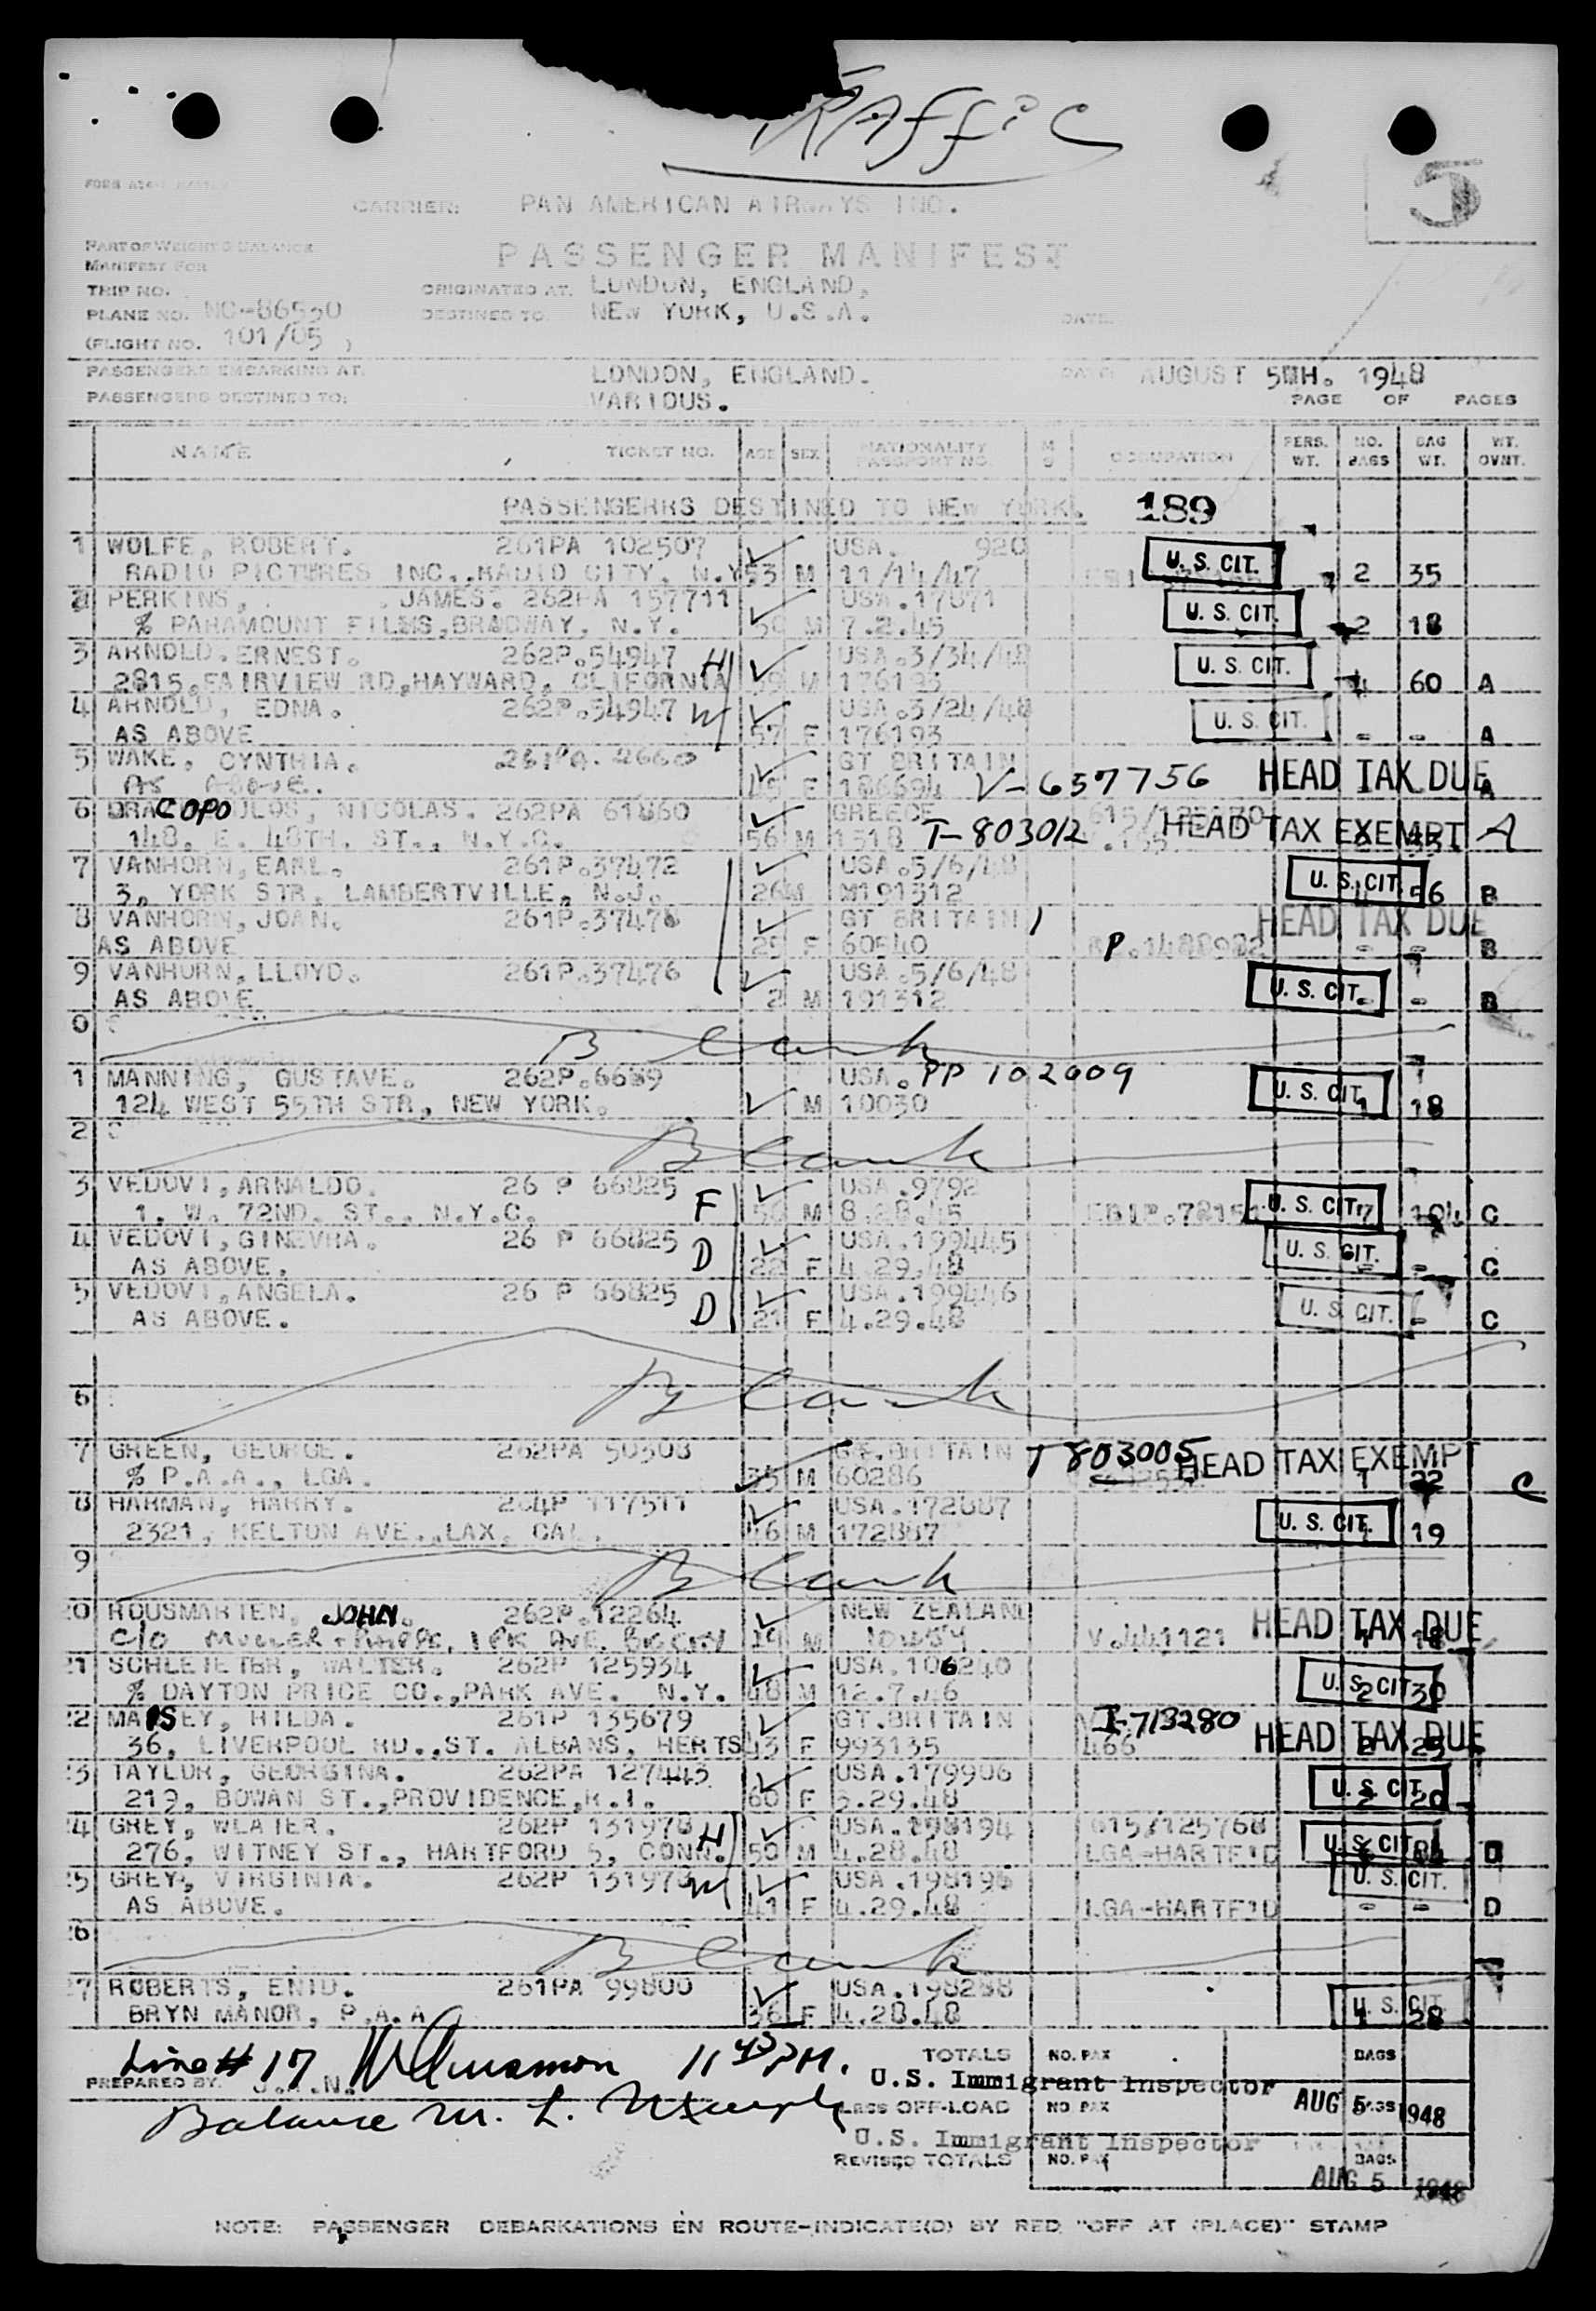 TRAFFIC
5
CARRIER: PAN AMERICAN AIRWAYS INC.
PART OF WEIGHT & BALANCE
MANIFEST FOR
PASSENGER MANIFEST
TRIP NO. ORIGINATED AT. LONDON, ENGLAND,
PLANE NO. NC-86530 DESTINED TO. NEW YORK, U.S.A. DATE.
(FLIGHT NO. 101/05 )
PASSENGERS EMBARKING AT. LONDON, ENGLAND. DATE AUGUST 5TH. 1948
PASSENGERS DESTINED TO: VARIOUS. PAGE OF PAGES
NAME TICKET NO. AGE SEX NATIONALITY PASSPORT NO. M S OCCUPATION PERS. WT. NO. BAGS BAG WT. WT. OVNT.
PASSENGERRS DESTINED TO NEW YORK. 189
1 WOLFE, ROBERT. 261PA 102507 USA. 920 U. S. CIT.
RADIO PICTURES INC.,RADIO CITY, N.Y 53 M 11/14/47 2 35
2 PERKINS, JAMES. 262PA 157711 USA.17671 U. S. CIT.
% PARAMOUNT FILMS,BRAODWAY, N.Y. M 7.2.45 2 18
3 ARNOLD.ERNEST. 262P.54947 H USA.3/34/48 U. S. CIT.
2815.FAIRVIEW RD,HAYWARD, CLIFORNIA 59 M 176193 4 60 A
4 ARNOLD, EDNA. 262P.54947 W USA.3/24/48 U. S. CIT.
AS ABOVE 57 F 176193 - - A
5 WAKE, CYNTHIA. 261PA. 2660 GT BRITAIN HEAD TAX DUE
AS ABOVE. 45 F 186694 V-637756 A
6 DRACOPOULOS, NICOLAS. 262PA 61860 GREECE HEAD TAX EXEMPT A
148. E. 48TH. ST., N.Y.C. 56 M 1518 T-803012
7 VANHORN,EARL. 261P.37472 USA.5/6/48 U. S. CIT.
3, YORK STR, LAMBERTVILLE, N.J. 26 M M191312 56 B
8 VANHORN,JOAN. 261P.37478 GT BRITAIN HEAD TAX DUE
AS ABOVE 25 F 60540 P.1488982 - - B
9 VANHORN,LLOYD. 261P.37476 USA.5/6/48 U. S. CIT.
AS ABOVE 2 M 191312 - - B
0 Blank
1 MANNING, GUSTAVE. 262P.6659 USA. PP 102009 U. S. CIT.
124 WEST 55TH STR, NEW YORK. M 10030 1 18
2 Blank
3 VEDOVI,ARNALDO. 26 P 66825 F USA.9792 U. S. CIT.
1. W. 72ND. ST., N.Y.C. 50 M 8.28.45 7 104 C
4 VEDOVI,GINEVRA. 26 P 66825 D USA.199445 U. S. CIT.
AS ABOVE. 22 F 4.29.48 - - C
5 VEDOVI,ANGELA. 26 P 66825 D USA.199446 U. S. CIT.
AS ABOVE. 21 F 4.29.48 - - C
6 Blank
7 GREEN, GEORGE. 262PA 50308 GT.BRITAIN T 803005 HEAD TAX EXEMPT
% P.A.A., LGA. 35 M 60286 1 22 C
8 HARMAN, HARRY. 264P 117511 USA.172887 U. S. CIT.
2321, KELTON AVE.,LAX. CAL. 46 M 172887 19
9 Blank
20 ROUSMARIEN, JOHN. 262P.12264 NEW ZEALAND HEAD TAX DUE
C/O MULLER + PHIPPS, 1 PK AVE. 19 M V.441121
21 SCHLEIETER, WALTER. 262P 125934 USA.106240 U. S. CIT.
% DAYTON PRICE CO.,PARK AVE. N.Y. 48 M 12.7.46 2 30
22 MAISEY, HILDA. 261P 135679 GT.BRITAIN I-713280 HEAD TAX DUE
36, LIVERPOOL RD.,ST. ALBANS, HERTS 43 F 993135 466 2 25
23 TAYLOR, GEORGINA. 262PA 127445 USA.179906 U. S. CIT.
219, BOWAN ST.,PROVIDENCE,R.I. 60 F 3.29.48 2 20
24 GREY, WLATER. 262P 131978 H USA.198194 615/125768 U. S. CIT.
276, WITNEY ST., HARTFORD 5, CONN. 50 M 4.28.48 LGA-HARTF'D D
25 GREY, VIRGINIA. 262P 131978 W USA.198196 U. S. CIT.
AS ABOVE. 41 F 4.29.48 LGA-HARTF'D - - D
26 Blank
27 ROBERTS, ENID. 261PA 99800 USA.198288 U. S. CIT.
BRYN MANOR, P.A.A 36 F 4.28.48 1 28
Line # 17 11 45 PM. TOTALS NO. PAX BAGS
PREPARED BY. J.A.N. U.S. Immigrant Inspector
Balance M. L. LESS OFF-LOAD NO. PAX BAGS AUG 5 1948
U.S. Immigrant Inspector
REVISED TOTALS NO. PAX BAGS AUG 5 1948
NOTE: PASSENGER DEBARKATIONS EN ROUTE-INDICATE(D) BY RED "OFF AT (PLACE)" STAMP